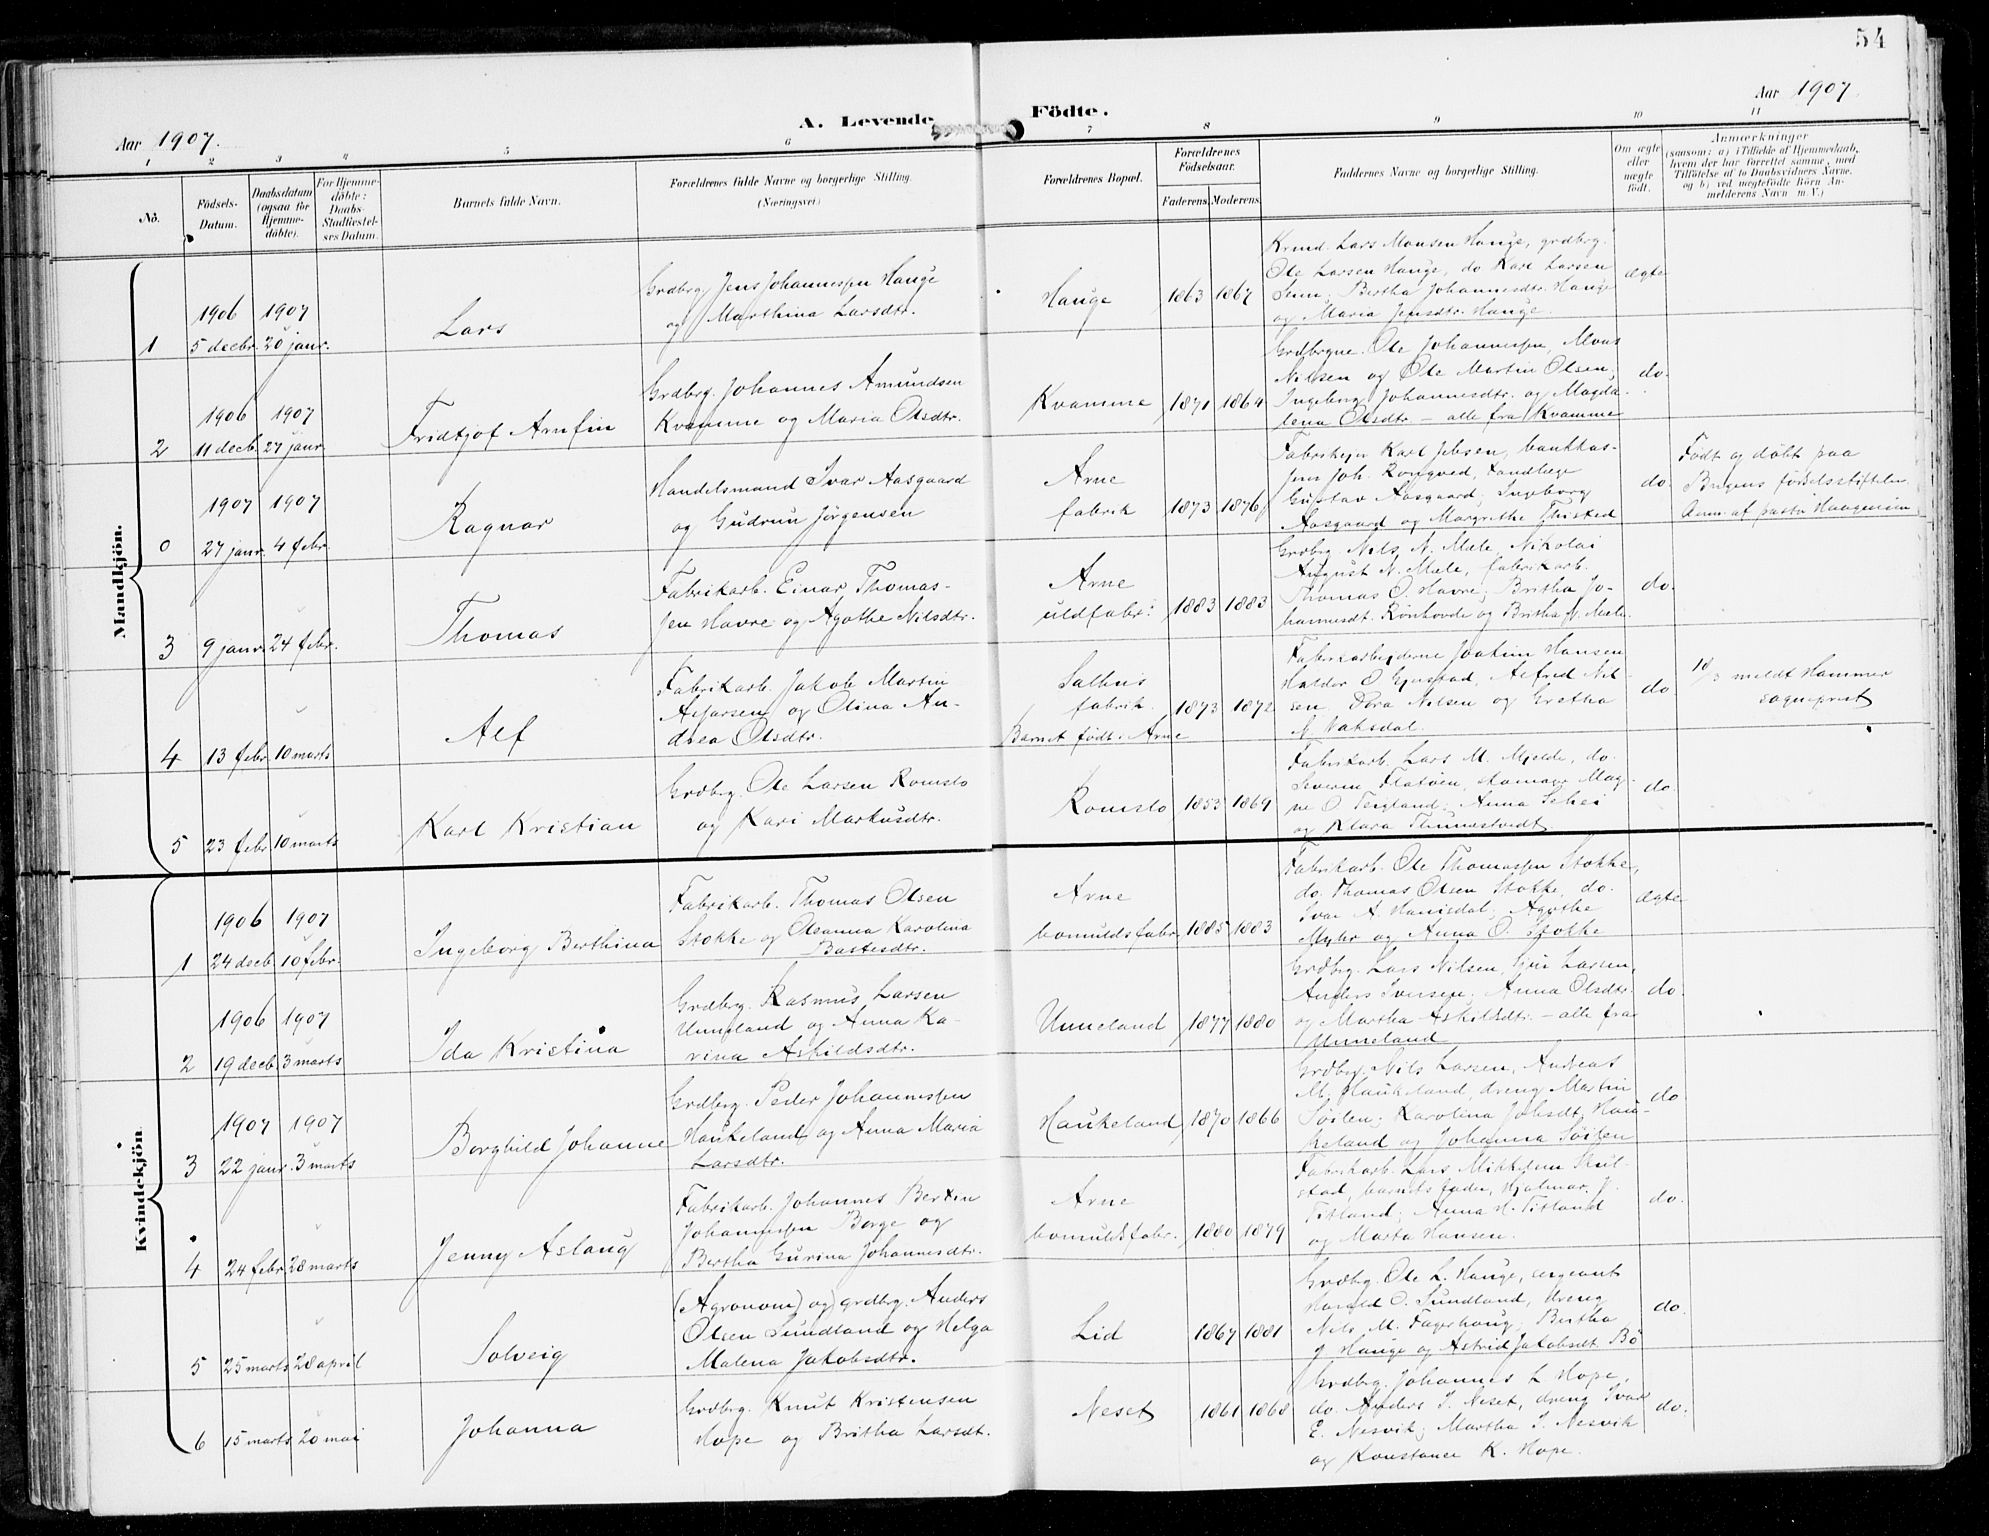 54
Aar 1907.
A. Levende
Födte.
Aar 1907.
1 2 3 4 5 6 7 8 9 10 11
No.
Födsels-
Datum.
Daabsdatum
(ogsaa for
Hjemme-
döbte).
For Hjemme-
döbte:
Daabs-
Stadfæstel-
ses Datum.
Barnets fulde Navn.
Forældrenes fulde Navne og borgerlige Stilling.
(Næringsvei)
Forældrenes Bopæl.
Forældrenes
Födselsaar.
Faderens. Moderens.
Faddernes Navne og borgerlige Stilling.
Om ægte
eller
uægte
födt.
Anmærkninger
(saasom: a) i Tilfælde af Hjemmedaab,
hvem der har forrettet samme, med
Tilföielse af to Daabsvidners Navne.
og b) ved uægtefödte Börn An-
melderens Navn m. V.)
Mandkjön.
1
1906
5 decbr.
1907
20 janr.
Lars
Grdbrg. Jens Johannessen Hauge
og Marthina Larsdtr.
Hauge
1863 1867
Lars Monsen Hauge, grdbrg.
Ole Larsen Hauge, do Karl Larsen
Bertha Johannesdtr. Hauge
og Maria Jensdtr. Hauge.
ægte
2
1906
11 decb.
1907
27 janr.
Fridtjof Arnfin
Grdbrg. Johannes Amundsen
Kvamme og Maria Olsdtr.
Kvamme
1871 1864
Grdbrgne. Ole Johannessen, Mons
Nilsen og Ole Martin Olsen,
Ingeborg Johannesdtr. og Magda-
lena Olsdtr – alle fra Kvamme
do.
0
1907
27 janr.
1907
4 febr.
Ragnar
Handelsmand Ivar Aasgaard
og Gudrun Jørgensen
Arne
fabrik
1873 1876
Karl Jebsen, bankkas-
Joh. Romgved, Landlæge
Gustav Aasgaard, Ingeborg
Aasgaard og Margrethe Thisted
do.
Født og döbt paa
Bergens fødselsstiftelse.
Anm. af
3
9 janr.
24 febr.
Thomas
Fabrikarb. Einar Thomas-
sen Havre og Agathe Nilsdtr.
Arne
uldfabr:
1883 1883
Grdbrg. Nils N. Mæle, Nikolai
August N. Mæle, fabrikarb.
Thomas O. Havre; Britha Jo-
hannesdt. Rønhovde og Britha N. Mæle
do.
4
13 febr.
10 marts
Alf
Fabrikarb. Jakob Martin
Aslaksen og Olina An-
drea Olsdtr.
Salhus
fabrik.
Barnet født. Arne
1873 1872
Fabrikarbeiderne Joakim Hansen
Haldor O Alfred Nil-
sen, Dora Nilsen og Gretha
Vaksdal.
do
10/3 meldt Hammer
sogneprest
5
23 febr
10 marts
Karl Kristian
Grdbrg. Ole Larsen Romslo
og Kari Markusdtr.
Romslo
1853 1869
Fabrikarb. Lars M. Mjelde, do.
Severin Flatøen, skomager Mag-
ne O Teigland; Anna Schei
og Klara
do.
Kvindekjön
1
1906
24 decb.
1907
10 febr.
Ingeborg Berthina
Fabrikarb. Thomas Olsen
Stokke og Oleanna Karolina
Bastesdtr.
Arne
bomuldsfabr.
1885 1883
Fabrikarb. Ole Thomassen Stokke,
do. Thomas Olsen Stokke, do.
Ivar A. Agathe
Myhr og Anna O. Stokke
ægte
2
1906
19 decb.
1907
3 marts
Ida Kristina
Grdbrg. Rasmus Larsen
Unneland og Anna Ka-
rina Askildsdtr.
Unneland
1877 1880
Grdbrg. Lars Nilsen, Sjur Larsen,
Anders Iversen; Anna Olsdtr.
og Martha Askildsdtr. – alle fra
Unneland
do.
3
1907
22 janr.
1907
3 marts
Borghild Johanne
Grdbrg. Peder Johannessen
Haukeland og Anna Maria
Larsdtr.
Haukeland
1870 1866
Grdbrg. Nils Larsen, Andreas
M. Haukeland, dreng Martin
Søilen; Karolina Johsdt. Hau-
keland og Johanna Søilen
do
4
24 febr.
28 marts
Jenny Aslaug
Fabrikarb. Johannes Bertin
Johannessen Borge og
Bertha Gurina Johannesdtr.
Arne
bomuldsfabr.
1880 1879
Fabrikarb. Lars Mikkelsen
barnets fader, Hjalmar J.
Titland; Anna H. Titland
og Marta Hansen.
do.
5
25 marts
28 april
Solveig
(Agronom) og grdbrg. Anders
Olsen Sundland og Helga
Malena Jakobsdtr.
Lid
1867 1881
Grdbrg. Ole L. Hauge, sergeant
Harald O. Sundland, dreng
Nils M. Fagerhaug; Bertha
J Hauge og Astrid Jakobsdt. Bö
do.
6
15 marts
20 mai
Johanna
Grdbrg. Knut Kristensen
Hope og Britha Larsdt.
Neset
1861 1868
Grdbrg. Johannes L Hope,
do. Anders I. Neset, dreng Ivar
E. Nesvik; Martha I. Nesvik
og Konstance K. Hope.
do.